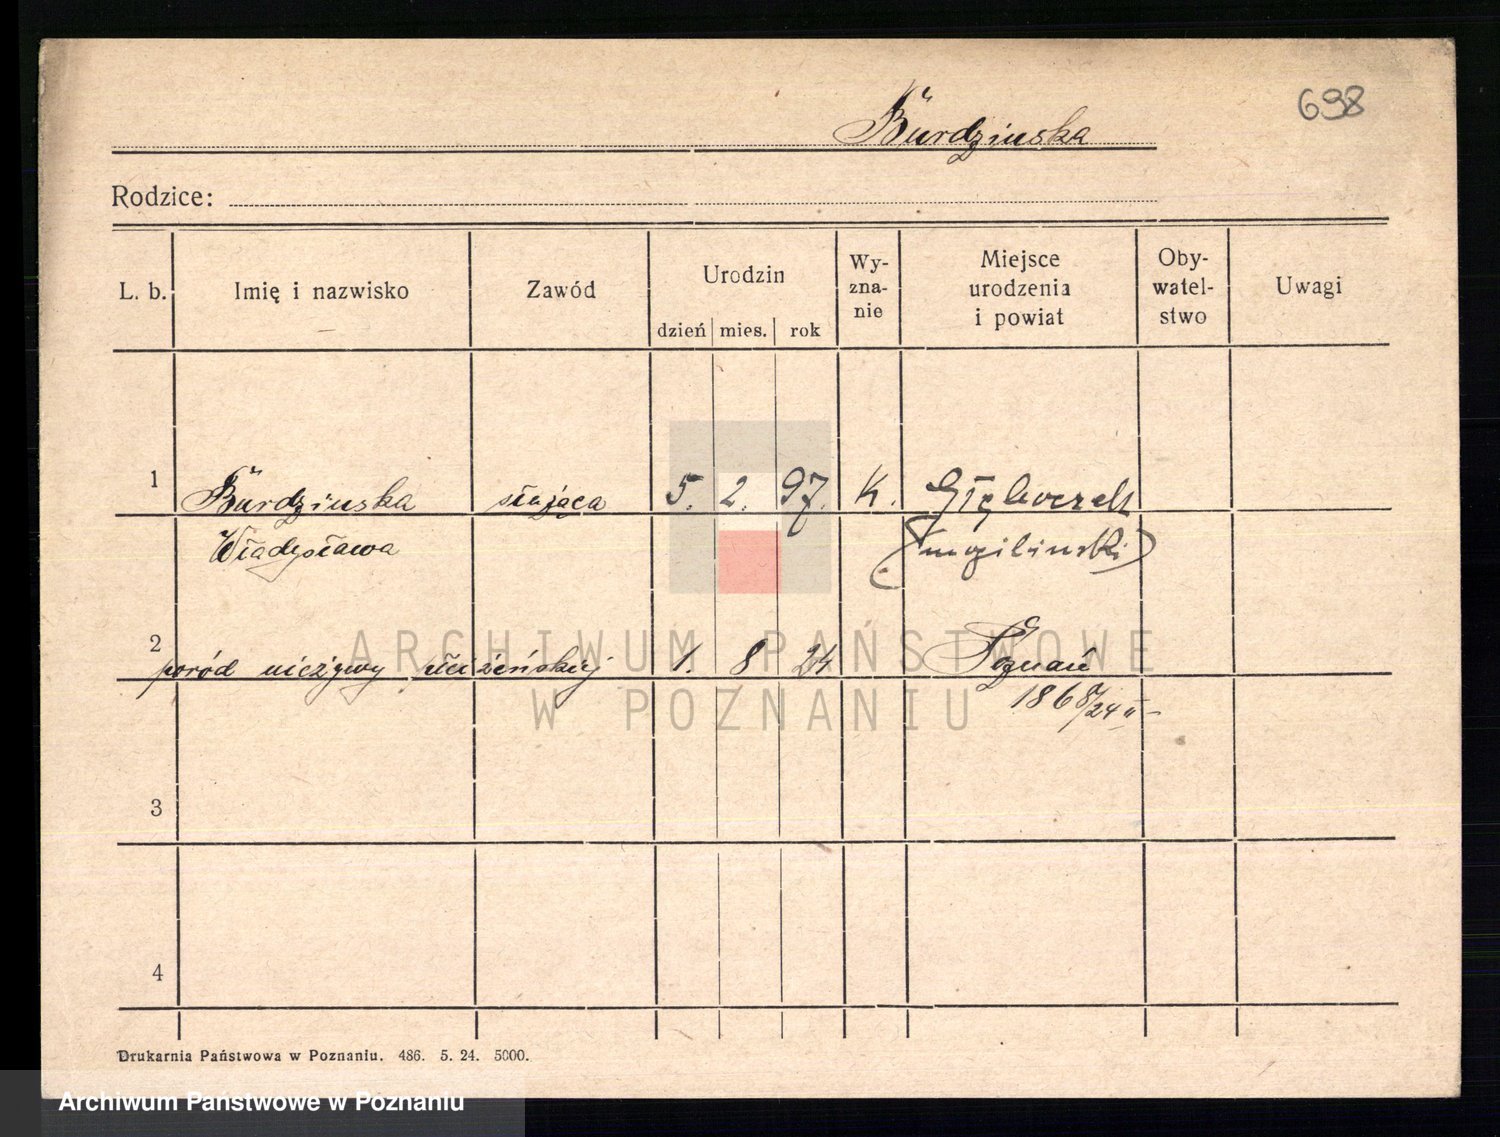 698
Burdzinska
Rodzice:
L. b. Imię i nazwisko Zawód Urodzin dzień mies. rok Wy-zna-nie Miejsce urodzenia i powiat Oby-watel-stwo Uwagi
1 Burdzinska służąca 5. 2. 97. K.
Władysława (mogilinski)
2 poród nieżywy płci żeńskiej 1. 8 24 Poznań
1868/24 II
3
4
Drukarnia Państwowa w Poznaniu. 486. 5. 24. 5000.
ARCHIWUM PAŃSTWOWE
W POZNANIU
Archiwum Państwowe w Poznaniu